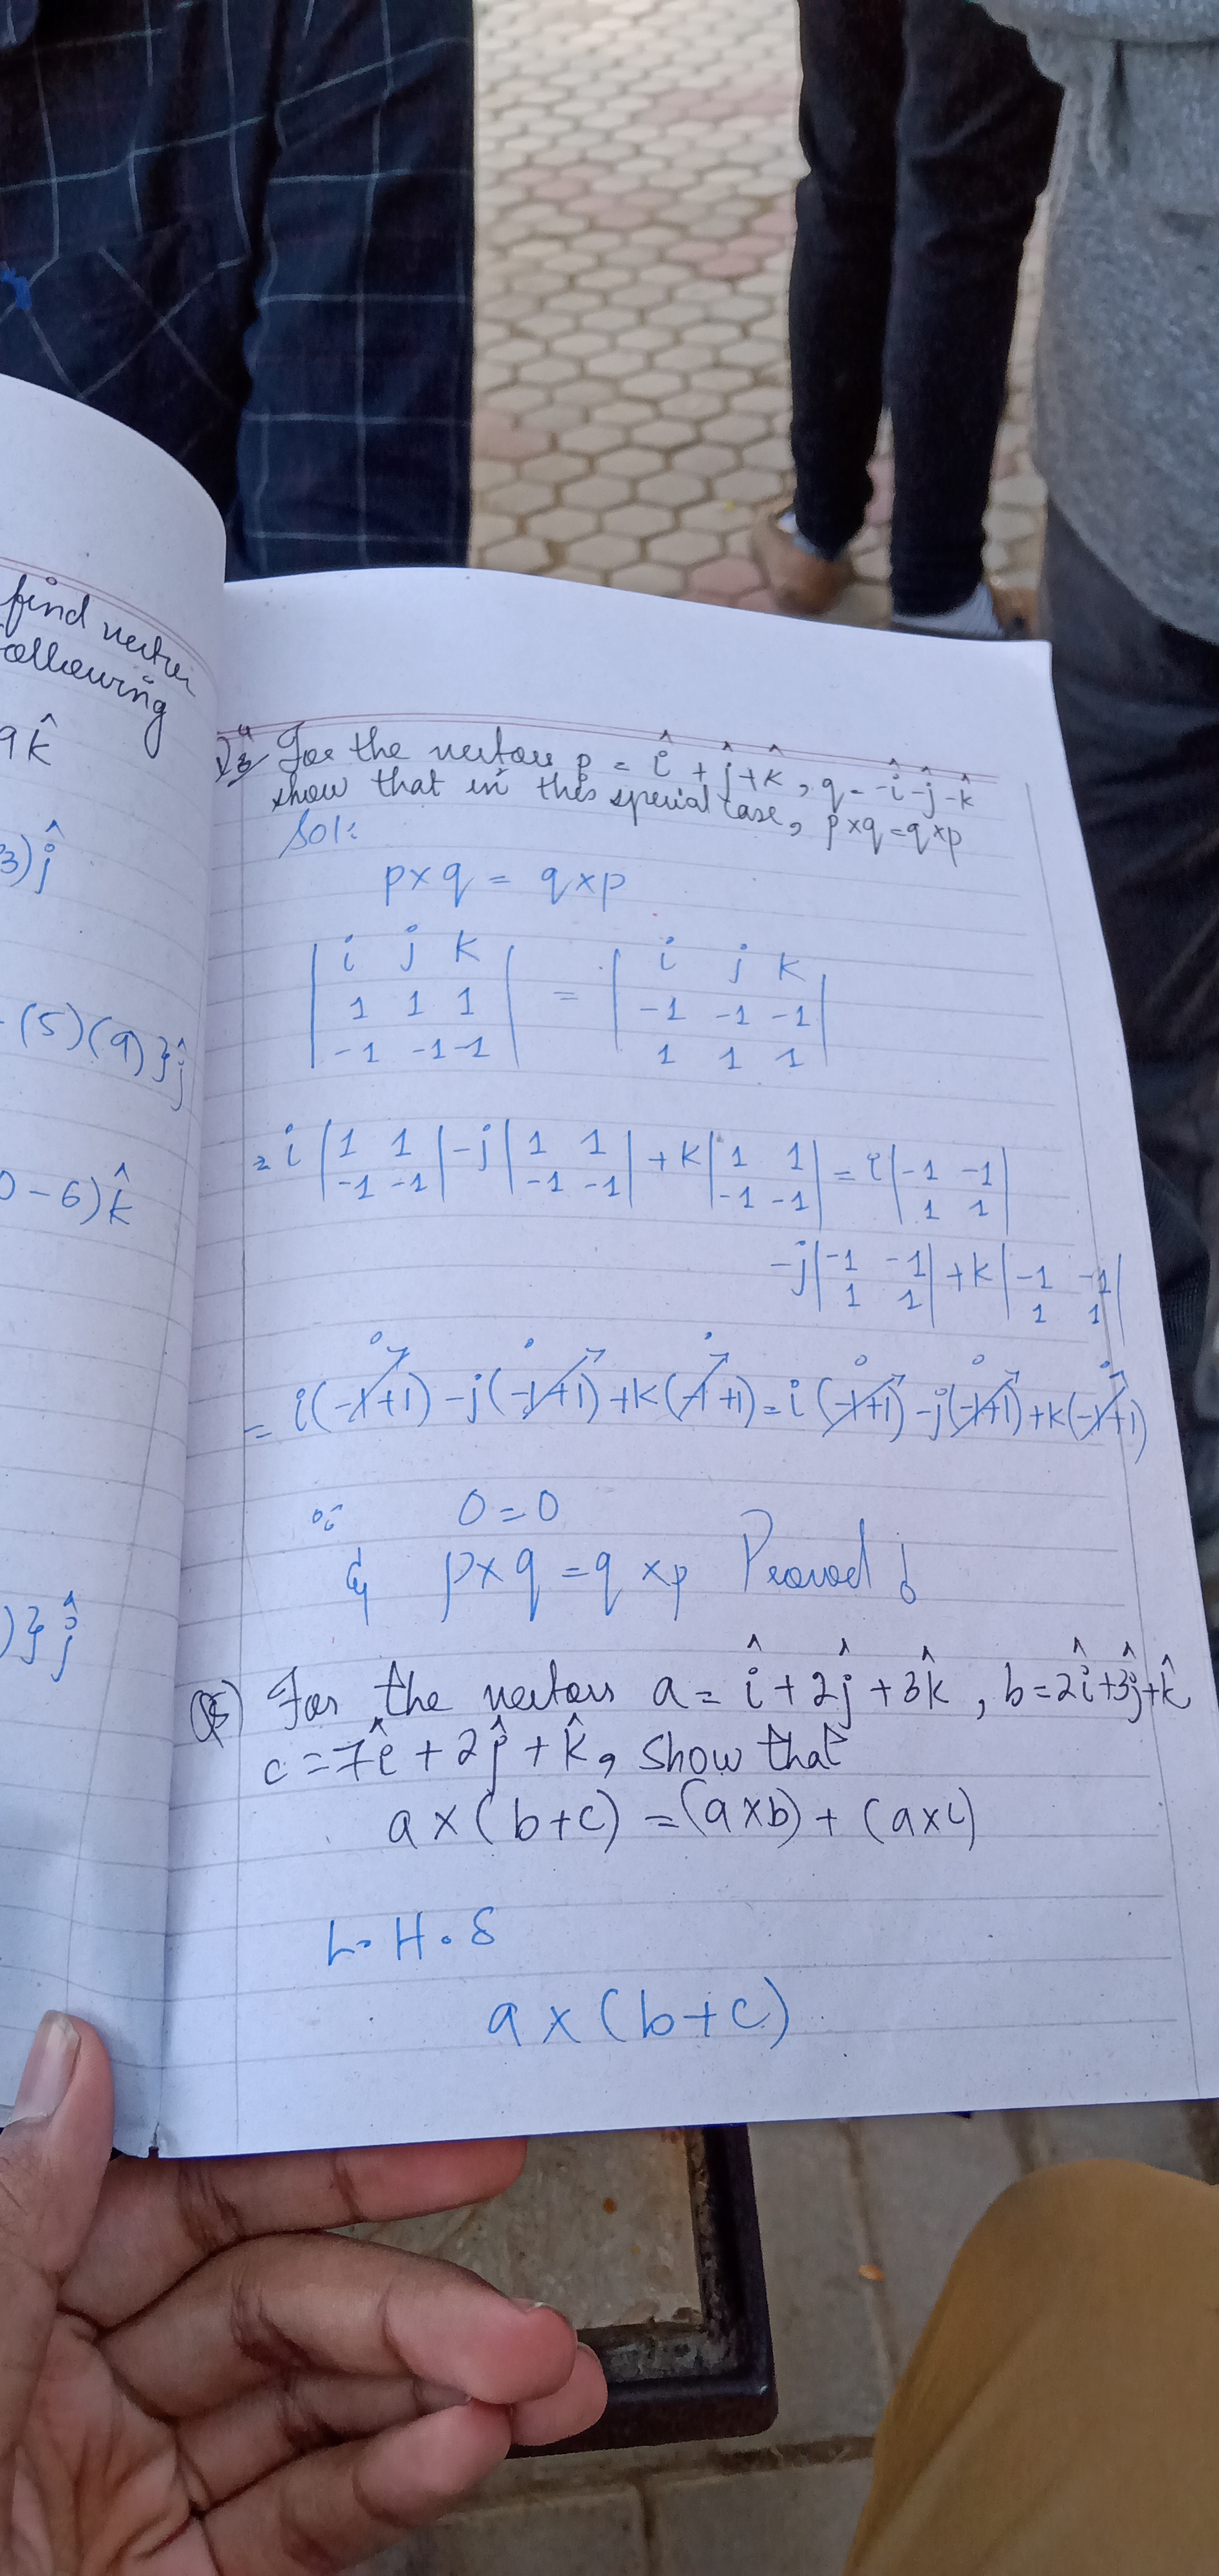 find vector
following
9k̂
3)ĵ
-(5)(9)}ĵ
0-6)k̂
)}ĵ
For the vectors p = î + ĵ + k̂, q = -î-ĵ-k̂
show that in this special case, p×q=q×p
Sol:
p×q = q×p
| i j k | = | i j k |
| 1 1 1 | | -1 -1 -1 |
| -1 -1 -1 | | 1 1 1 |
= i | 1 1 | -j | 1 1 | +k | 1 1 | = i | -1 -1 |
| -1 -1 | | -1 -1 | | -1 -1 | | 1 1 |
-j | -1 -1 | +k | -1 -1 |
| 1 1 | | 1 1 |
0 0 0 0 0 0
= i(-1+1) -j(-1+1) +k(-1+1) = i(-1+1) -j(-1+1) +k(-1+1)
0=0
p×q = q×p Proved!
Q5) For the vectors a = î + 2ĵ + 3k̂, b=2î+3ĵ+k̂
c = 7î + 2ĵ + k̂, show that
a×(b+c) = (a×b) + (a×c)
L.H.S
a×(b+c)